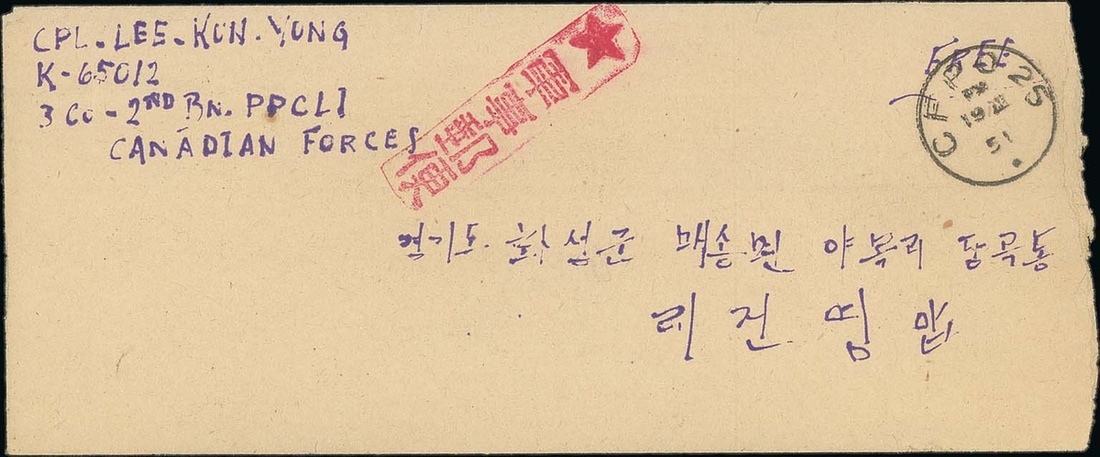 CPL. LEE. KUN. YUNG
K-65012
3 Co - 2ND BN. PPCLI
CANADIAN FORCES
CFPO 25
19
51
경기도. 화성군 매송면 야목리 당곡동
리 건 영 앞